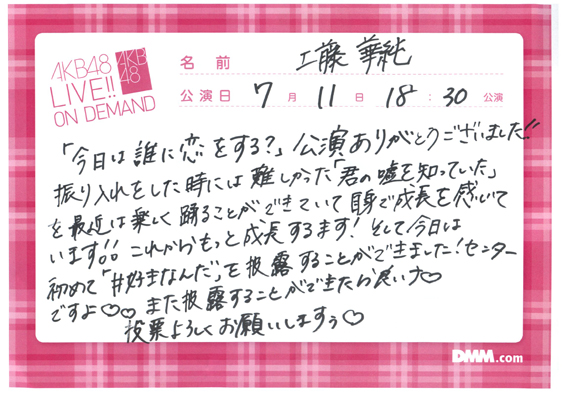 AKB48
LIVE!!
ON DEMAND
AKB
48
名前 工藤 華純
公演日 7月 11日 18:30 公演
「今日は誰に恋をする?」公演ありがとうございました!!
振り入れをした時には難しかった「君の嘘を知っていた」
を最近は楽しく踊ることができていて自身で成長を感じて
います!! これからもっと成長するます! そして今日は
初めて「#好きなんだ」を披露することができました! センター
ですよ♡♡ また披露することができたら良いな♡
投票よろしくお願いしますぅ♡
DMM.com